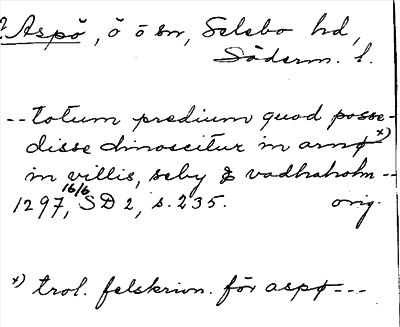 ? Aspö, ö ö sn, Selebo hd,
Söderm. l.
-- totum predium quod posse-
disse dinoscitur in arnø x)
in villis, seby & vadhaholm --
1297, 16/6 SD 2, s. 235. orig.
x) trol. felskrivn. för aspø ---